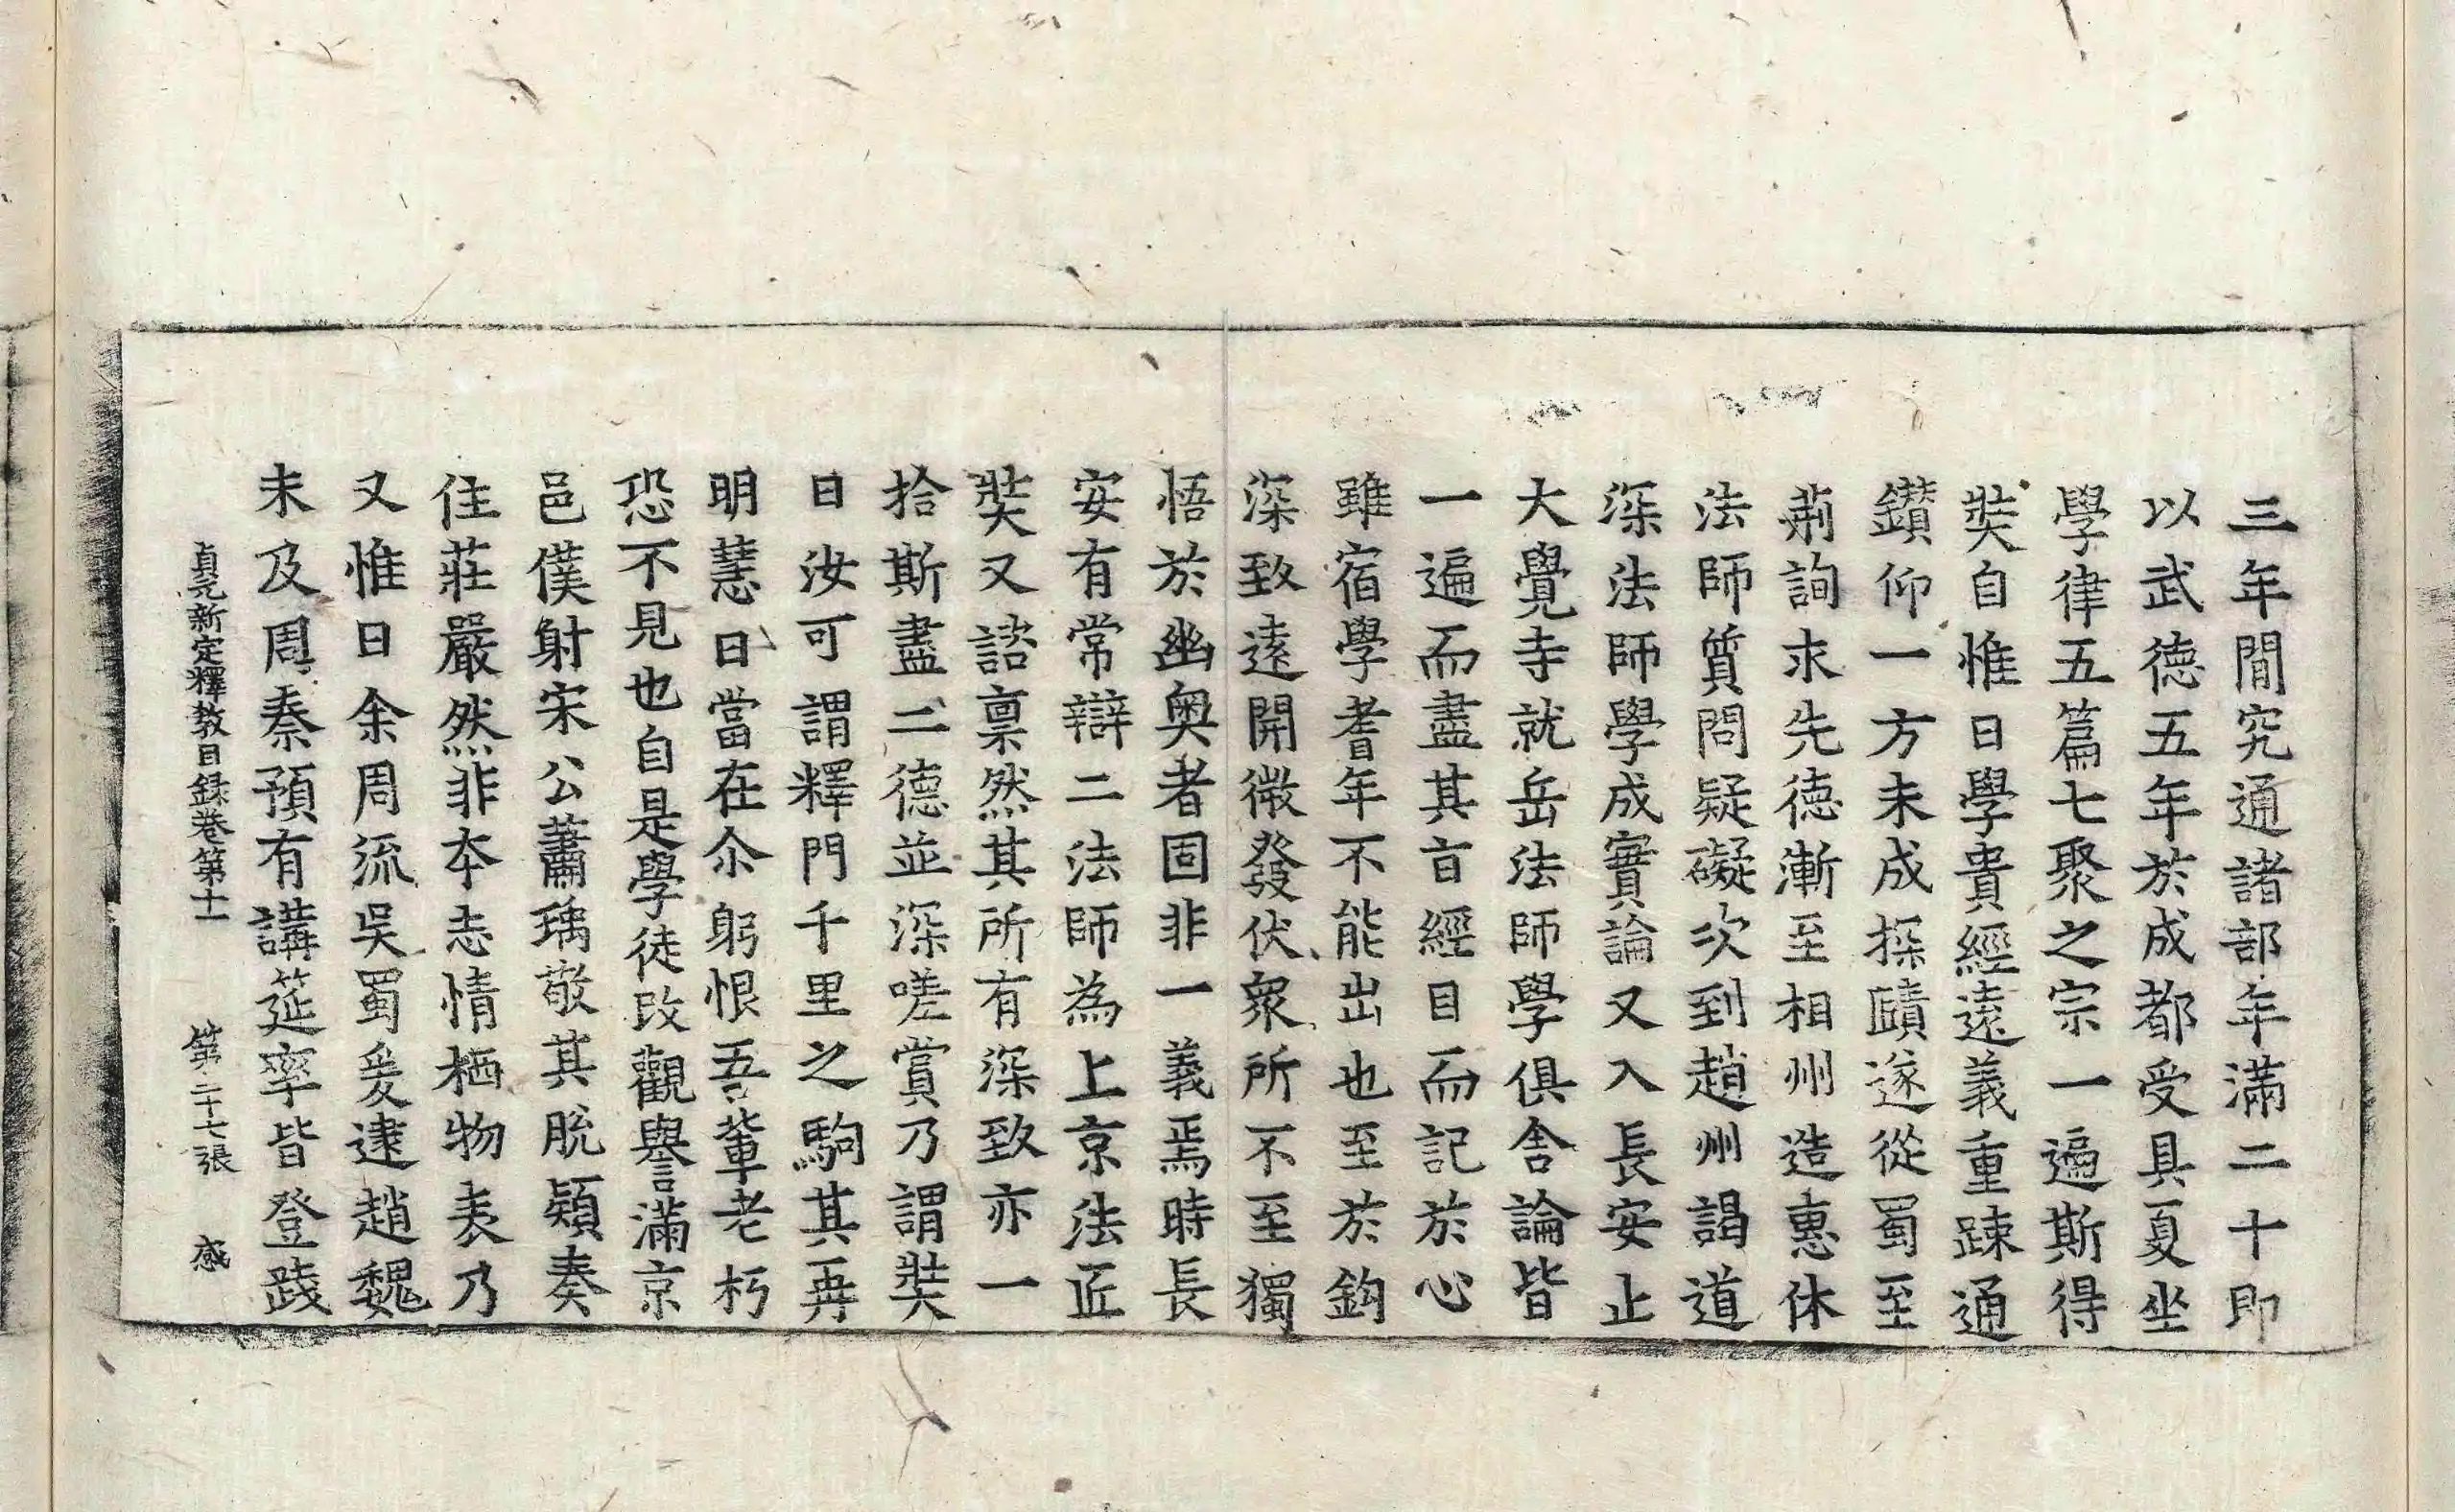 三年間究通諸部年滿二十即
以武德五年於成都受具夏坐
學律五篇七聚之宗一遍斯得
奘自惟曰學貴經遠義重踈通
鑚仰一方未成探賾遂從蜀至
荊詢求先德漸至相州造惠休
法師質問疑礙次到趙州謁道
深法師學成實論又入長安止
大覺寺就岳法師學俱舍論皆
一遍而盡其旨經目而記於心
雖宿學耆年不能出也至於鈎
深致遠開微發伏衆所不至獨
悟於幽奧者固非一義焉時長
安有常辯二法師為上京法匠
奘又諮稟然其所有深致亦一
拾斯盡二德並深嗟賞乃謂奘
曰汝可謂釋門千里之駒其再
明慧日當在尒躬恨吾輩老朽
恐不見也自是學徒改觀譽滿京
邑僕射宋公蕭瑀敬其脫穎奏
住莊嚴然非本志情栖物表乃
又惟曰余周流吳蜀爰逮趙魏
末及周秦預有講筵率皆登踐
貞元新定釋教目録卷第十一 第二十七張 感